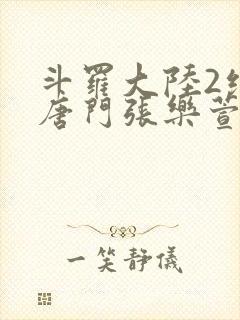 斗羅大陸2
唐門張樂萱
一笑靜儀